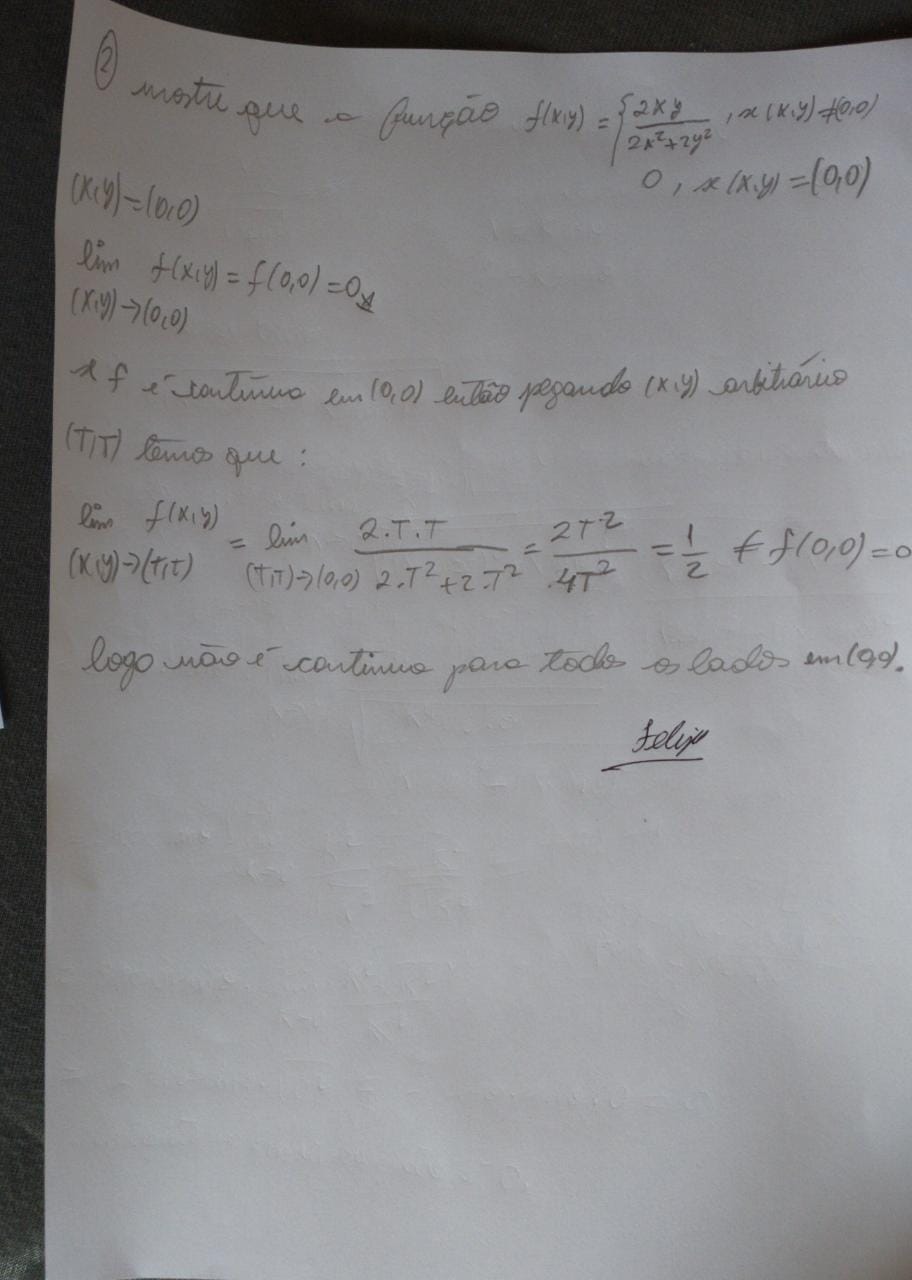 ② mostre que a função f(x,y) = { 2xy / 2x²+2y² , se (x,y) ≠ (0,0)
0 , se (x,y) = (0,0)
(x,y) = (0,0)
lim f(x,y) = f(0,0) = 0
(x,y)→(0,0)
se f é contínua em (0,0) então pegando (x,y) arbitrário
(T,T) temos que :
lim f(x,y) = lim 2.T.T / 2.T²+2.T² = 2T² / 4T² = 1/2 ≠ f(0,0) = 0
(x,y)→(T,T) (T,T)→(0,0)
logo não é contínua para todos os lados em (0,0).
Felipe